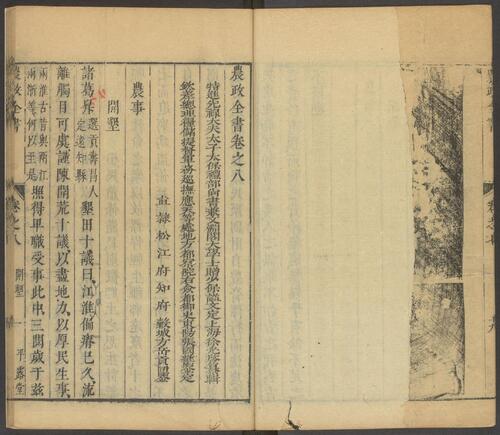 農政全書卷之八
特進光祿大夫太子太保禮部尚書兼文淵閣大學士贈少保諡文定上海徐光啓纂輯
欽差總理糧儲提督軍務巡撫應天等處地方都察院右僉都御史東陽張國維鑒定
直隸松江府知府穀城方岳貢同鑒
農事
開墾
諸葛昇 選貢壽昌人 定遠知縣 墾田十議曰江淮偏瘠已久流
離觸目可虞謹陳開荒十議以盡地力以厚民生事
兩淮古昔與兩江
兩浙等何以至是 照得卑職受事此中三閱歲于茲
農政全書
卷之八
開墾
一
平露堂